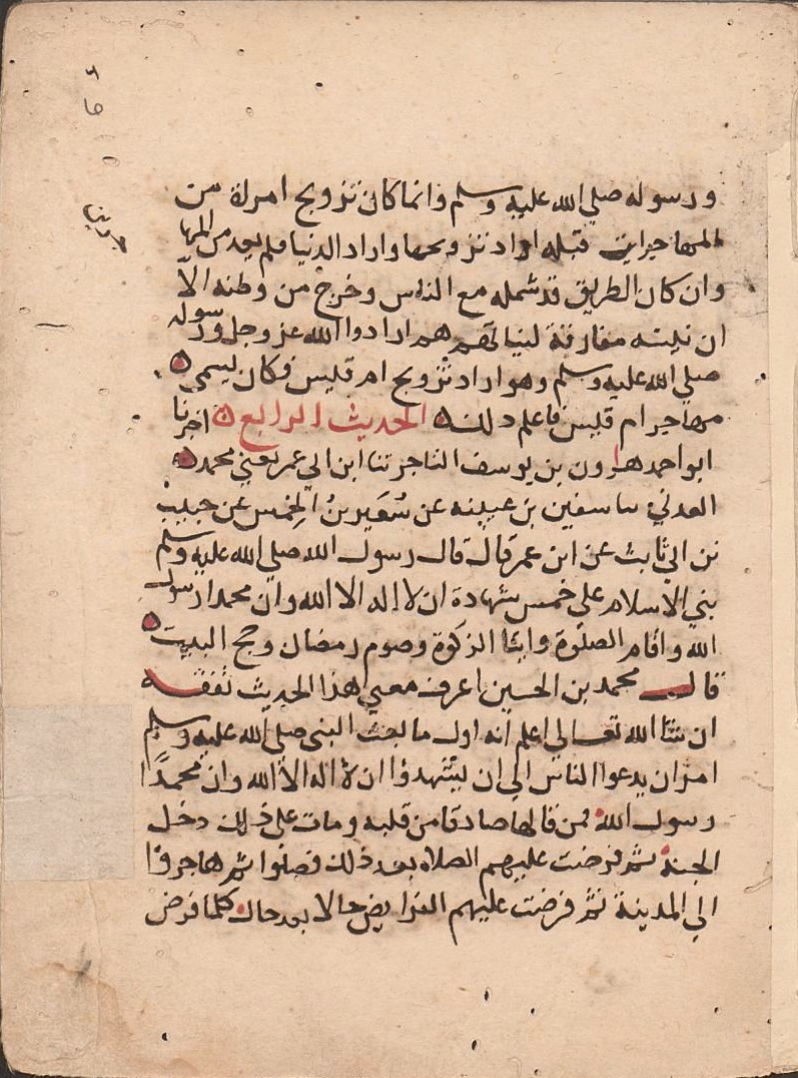 ورسوله صلي الله عليه وسلم وانما كان تزويج امراة من
المهاجرات قبله اراد تزويجها واراد الدنيا فلم يعد من المها
وان كان الطريق قد شمله مع الناس وخرج من وطنه الا
ان نيته مفارقة لنياتهم هم ارادوا الله عز وجل ورسوله
صلي الله عليه وسلم وهو اراد تزويج ام قيس فكان يسمي ه
مهاجر ام قيس فاعلم ذلك ه الحديث الرابع ه اخبرنا
ابو احمد هارون بن يوسف التاجر ثنا ابن ابي عمر يعني محمد ه
العدني ثنا سفين بن عيينه عن سُعَير بنُ الخِمس عن حبيب
بن ابي ثابت عن ابن عمر قال قال رسول الله صلي الله عليه وسلم
بني الاسلام علي خمس شهادة ان لا اله الا الله وان محمدا رسول
الله واقام الصلوة وايتا الزكوة وصوم رمضان وحج البيت ه
قال محمد بن الحسين اعرف معني هذا الحديث تفقه
ان شا الله تعالي اعلم انه اول ما بعث النبي صلي الله عليه وسلم
امر ان يدعوا الناس الي ان يشهدوا ان لا اله الا الله وان محمدًا
رسول الله فمن قالها صادقا من قلبه ومات علي ذلك دخل
الجنة ثم فرضت عليهم الصلاه بعد ذلك فصلوا ثم هاجروا
الي المدينة ثم فرضت عليهم الفرايض حالا بعد حال كلما فرض